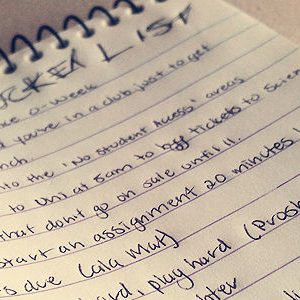 CKET LIST
o-week
you're in a club just to get
nch.
to the 'No Student Access' areas
to uni at 5am to buy tickets to Scien
that dont go on sale until 11.
start an assignment 20 minutes
s due (aila mat)
rd, play hard (Prosh